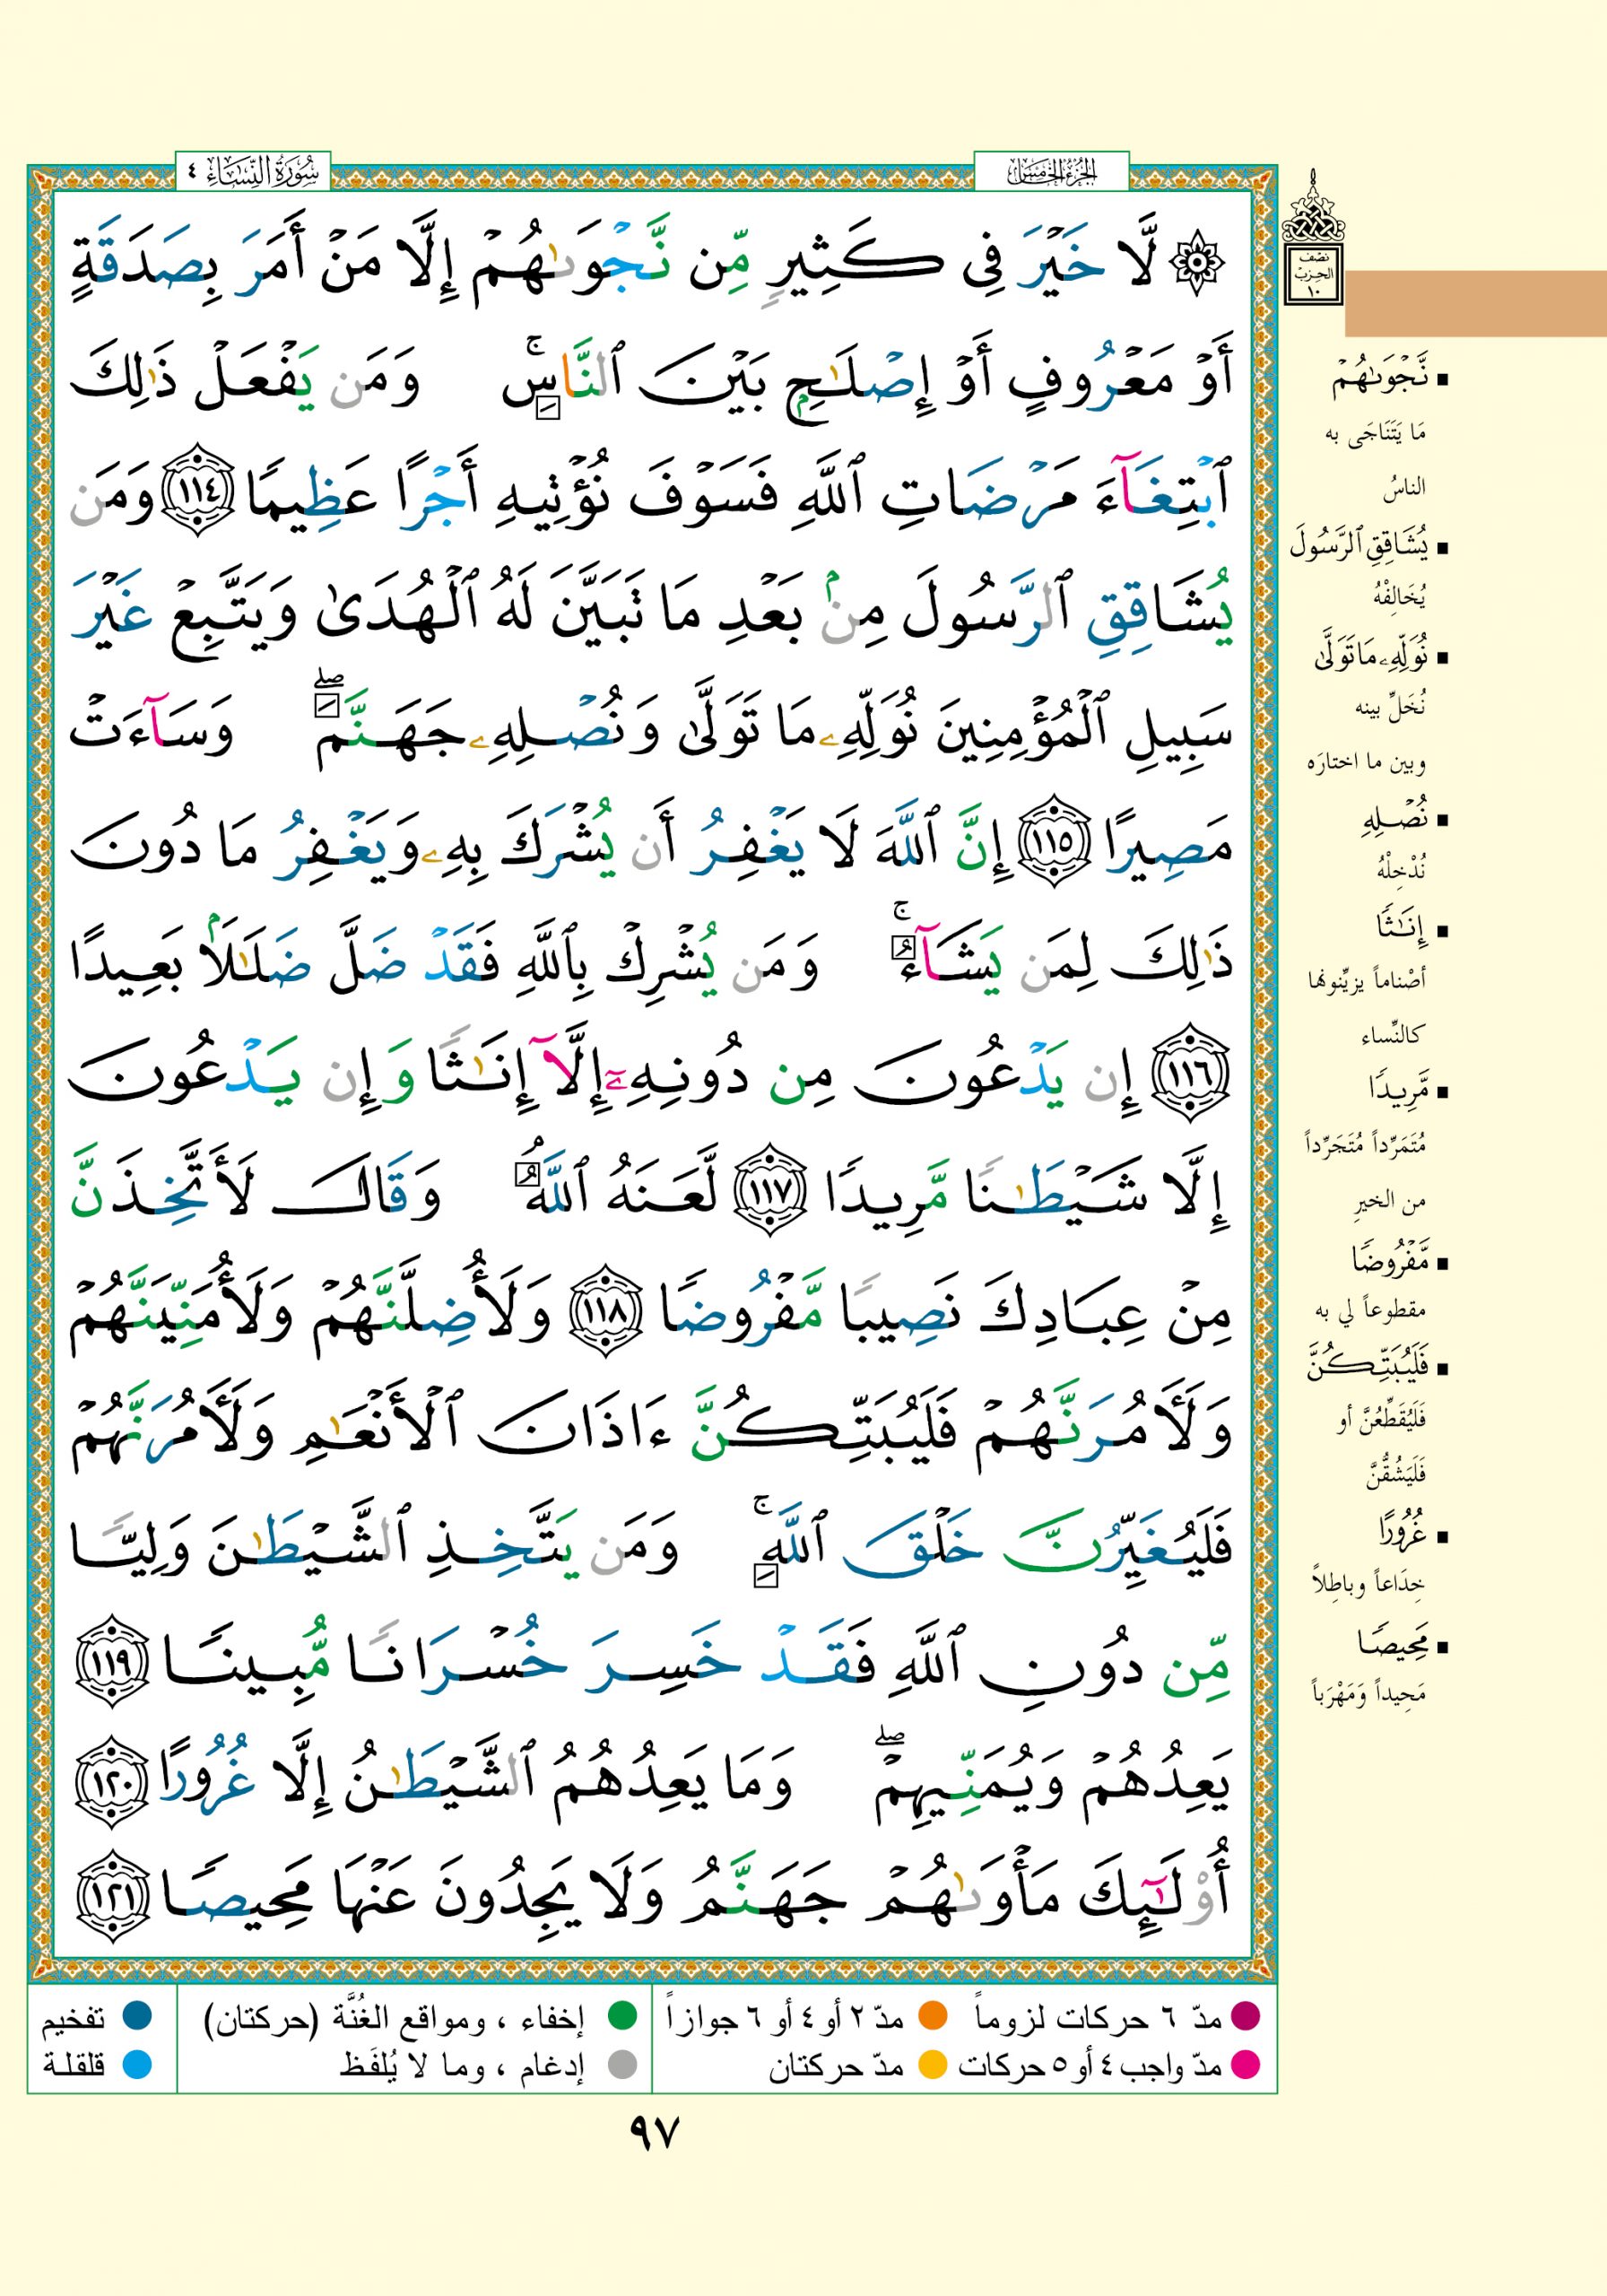 الجزء الخامس
سورة النساء ٤
۞ لَّا خَيْرَ فِى كَثِيرٍ مِّن نَّجْوَىٰهُمْ إِلَّا مَنْ أَمَرَ بِصَدَقَةٍ
أَوْ مَعْرُوفٍ أَوْ إِصْلَـٰحٍۭ بَيْنَ ٱلنَّاسِ ۚ وَمَن يَفْعَلْ ذَٰلِكَ
ٱبْتِغَآءَ مَرْضَاتِ ٱللَّهِ فَسَوْفَ نُؤْتِيهِ أَجْرًا عَظِيمًا ١١٤ وَمَن
يُشَاقِقِ ٱلرَّسُولَ مِنۢ بَعْدِ مَا تَبَيَّنَ لَهُ ٱلْهُدَىٰ وَيَتَّبِعْ غَيْرَ
سَبِيلِ ٱلْمُؤْمِنِينَ نُوَلِّهِۦ مَا تَوَلَّىٰ وَنُصْلِهِۦ جَهَنَّمَ ۖ وَسَآءَتْ
مَصِيرًا ١١٥ إِنَّ ٱللَّهَ لَا يَغْفِرُ أَن يُشْرَكَ بِهِۦ وَيَغْفِرُ مَا دُونَ
ذَٰلِكَ لِمَن يَشَآءُ ۚ وَمَن يُشْرِكْ بِٱللَّهِ فَقَدْ ضَلَّ ضَلَـٰلًۢا بَعِيدًا
١١٦ إِن يَدْعُونَ مِن دُونِهِۦٓ إِلَّآ إِنَـٰثًا وَإِن يَدْعُونَ
إِلَّا شَيْطَـٰنًا مَّرِيدًا ١١٧ لَّعَنَهُ ٱللَّهُ ۘ وَقَالَ لَأَتَّخِذَنَّ
مِنْ عِبَادِكَ نَصِيبًا مَّفْرُوضًا ١١٨ وَلَأُضِلَّنَّهُمْ وَلَأُمَنِّيَنَّهُمْ
وَلَـَٔامُرَنَّهُمْ فَلَيُبَتِّكُنَّ ءَاذَانَ ٱلْأَنْعَـٰمِ وَلَـَٔامُرَنَّهُمْ
فَلَيُغَيِّرُنَّ خَلْقَ ٱللَّهِ ۚ وَمَن يَتَّخِذِ ٱلشَّيْطَـٰنَ وَلِيًّا
مِّن دُونِ ٱللَّهِ فَقَدْ خَسِرَ خُسْرَانًا مُّبِينًا ١١٩
يَعِدُهُمْ وَيُمَنِّيهِمْ ۖ وَمَا يَعِدُهُمُ ٱلشَّيْطَـٰنُ إِلَّا غُرُورًا ١٢٠
أُو۟لَـٰٓئِكَ مَأْوَىٰهُمْ جَهَنَّمُ وَلَا يَجِدُونَ عَنْهَا مَحِيصًا ١٢١
نصف
الحزب
١٠
▪ نَّجْوَىٰهُمْ
مَا يَتَنَاجَى به
الناسُ
▪ يُشَاقِقِ ٱلرَّسُولَ
يُخَالِفْهُ
▪ نُوَلِّهِۦ مَا تَوَلَّىٰ
نُخَلِّ بينه
وبين ما اختارَه
▪ نُصْلِهِ
نُدْخِلْهُ
▪ إِنَـٰثًا
أصْناماً يزيِّنونها
كالنِّساء
▪ مَّرِيدًا
مُتَمَرِّداً مُتَجَرِّداً
من الخيرِ
▪ مَّفْرُوضًا
مقطوعاً لي به
▪ فَلَيُبَتِّكُنَّ
فَلَيُقَطِّعُنَّ أو
فَلَيَشُقُّنَّ
▪ غُرُورًا
خِدَاعاً وباطِلاً
▪ مَحِيصًا
مَحِيداً وَمَهْرَباً
مدّ ٦ حركات لزوماً مدّ ٢ أو ٤ أو ٦ جوازاً إخفاء ، ومواقع الغُنَّة (حركتان) تفخيم
مدّ واجب ٤ أو ٥ حركات مدّ حركتان إدغام ، وما لا يُلفَظ قلقلة
٩٧